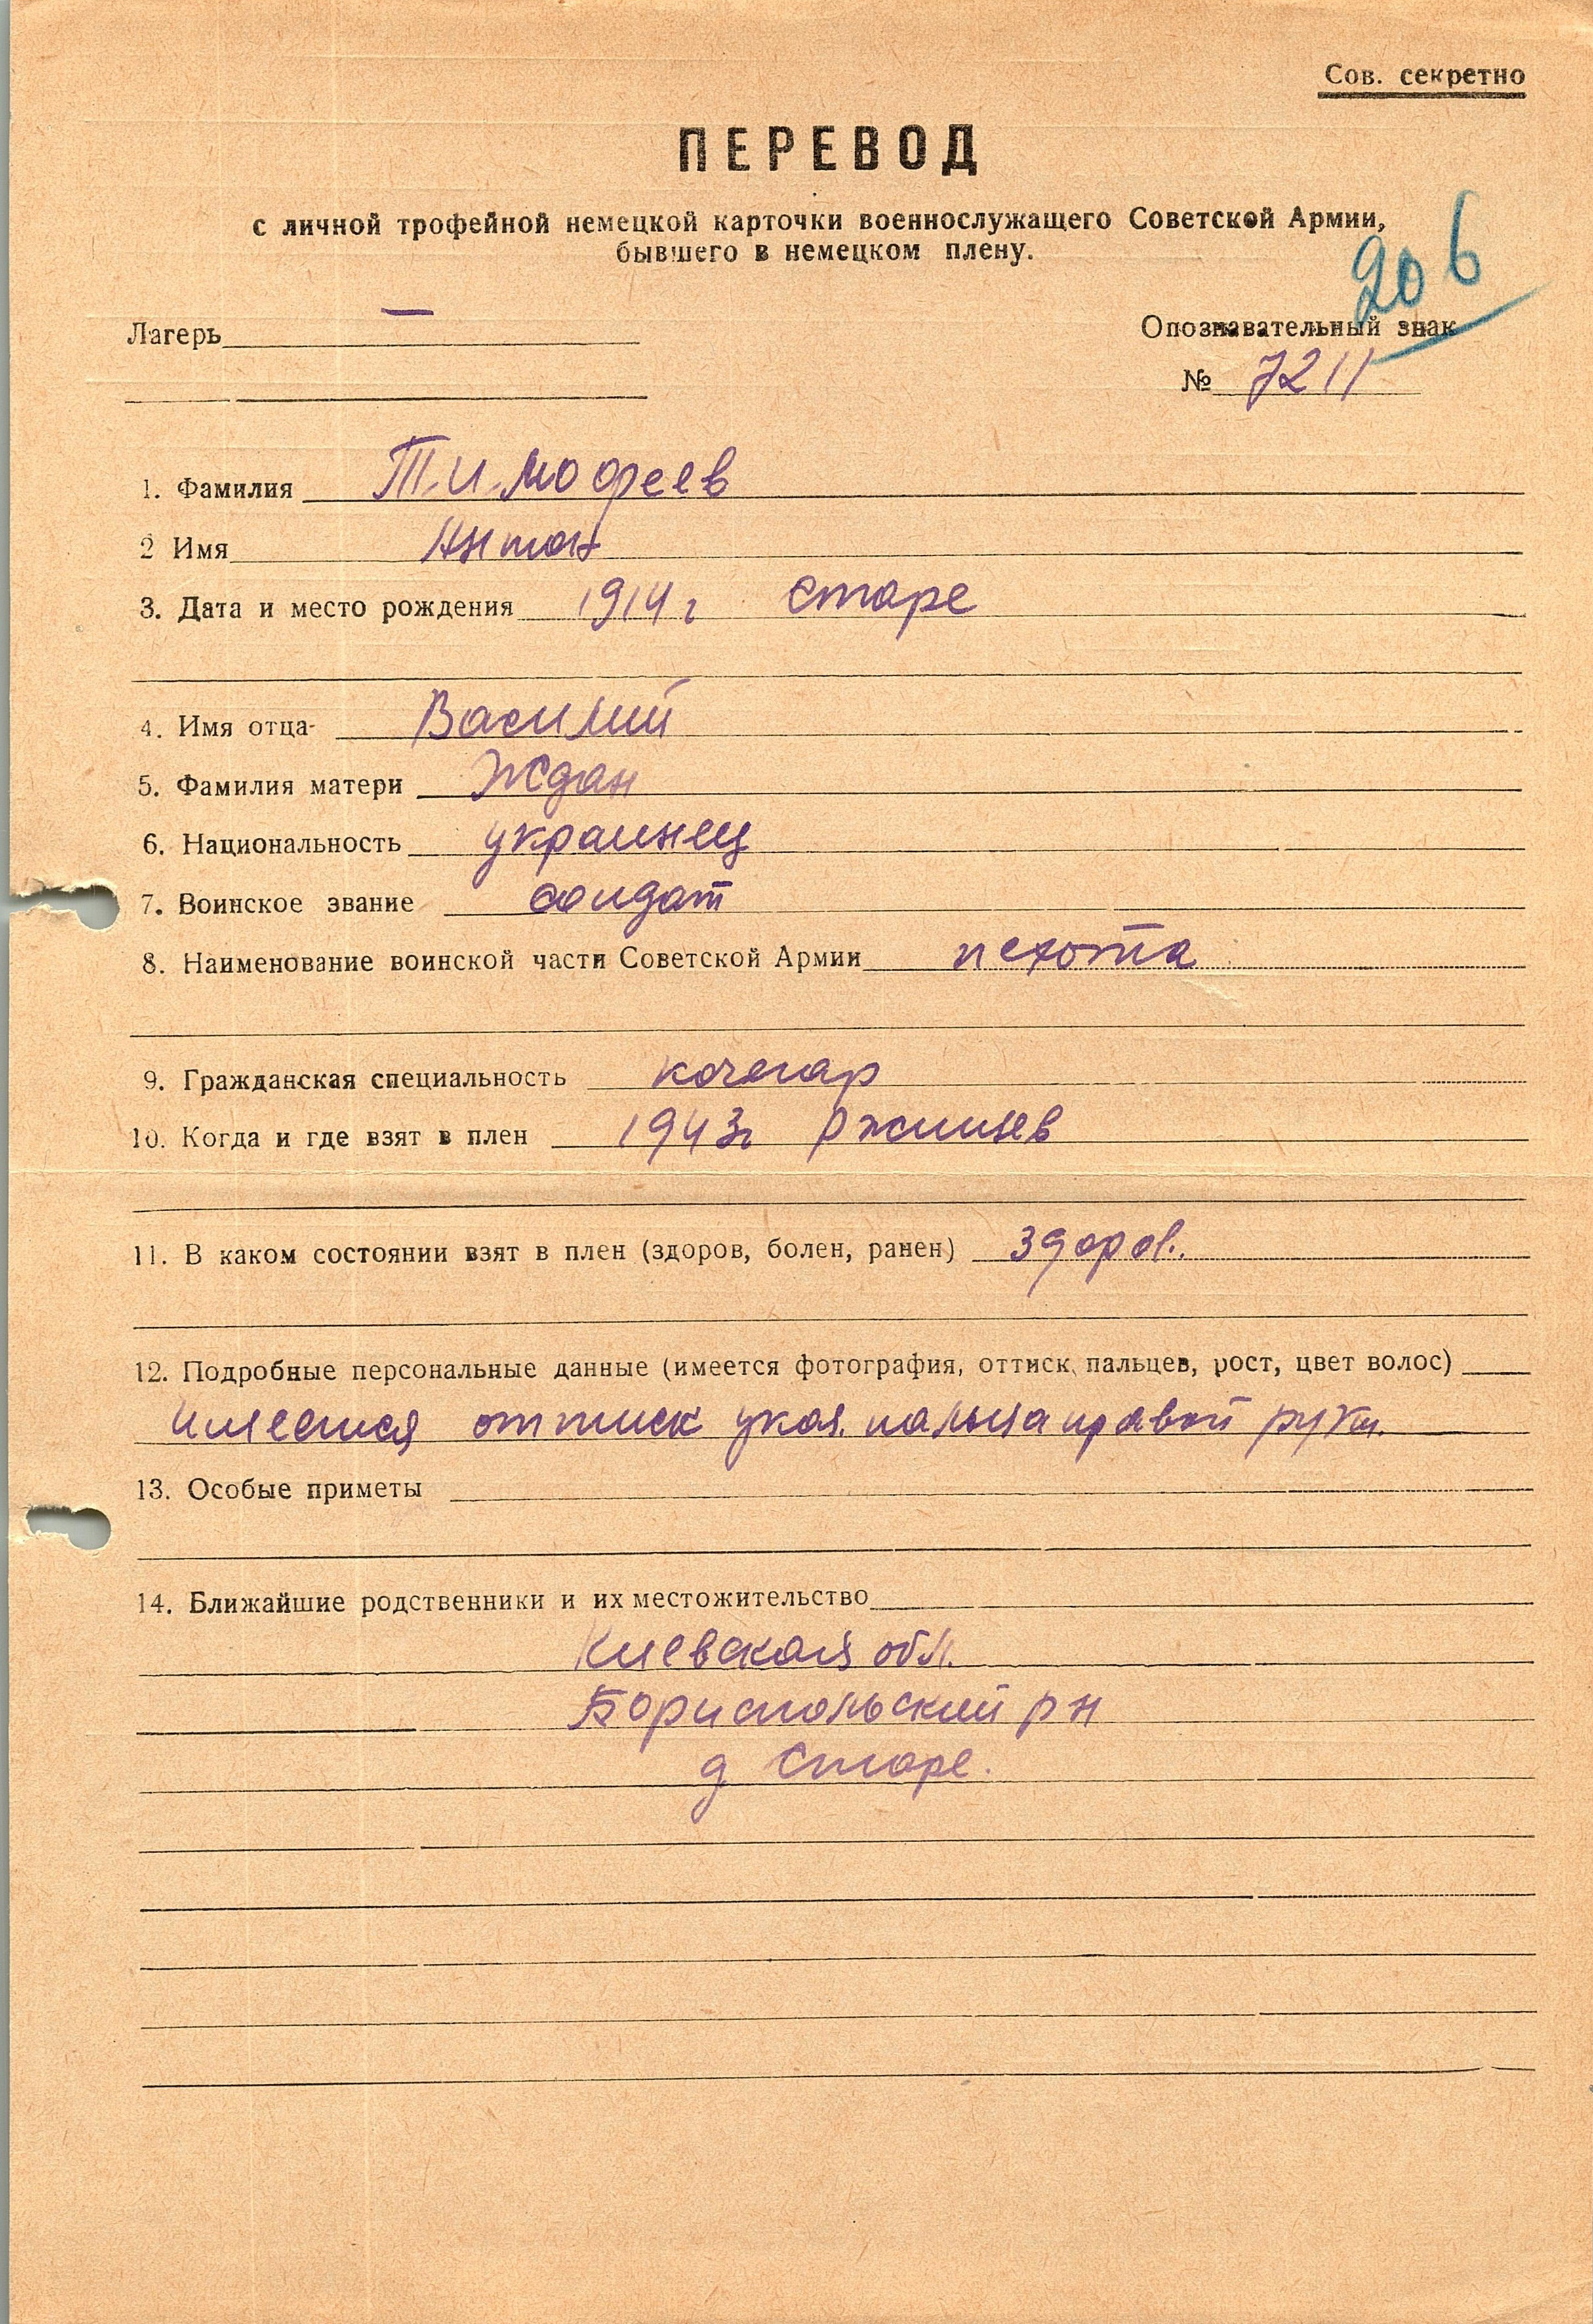 Сов. секретно
ПЕРЕВОД
с личной трофейной немецкой карточки военнослужащего Советской Армии,
бывшего в немецком плену.
206
Лагерь —
Опознавательный знак
№ 7211
1. Фамилия Тимофеев
2 Имя Антон
3. Дата и место рождения 1914 г Старе
4. Имя отца- Василий
5. Фамилия матери Ждан
6. Национальность украинец
7. Воинское звание солдат
8. Наименование воинской части Советской Армии пехота
9. Гражданская специальность кочегар
10. Когда и где взят в плен 1943г Ржищев
11. В каком состоянии взят в плен (здоров, болен, ранен) здоров.
12. Подробные персональные данные (имеется фотография, оттиск пальцев, рост, цвет волос)
имеется оттиск указ. пальца правой руки.
13. Особые приметы
14. Ближайшие родственники и их местожительство
Киевская обл.
Бориспольский р н
д Старе.